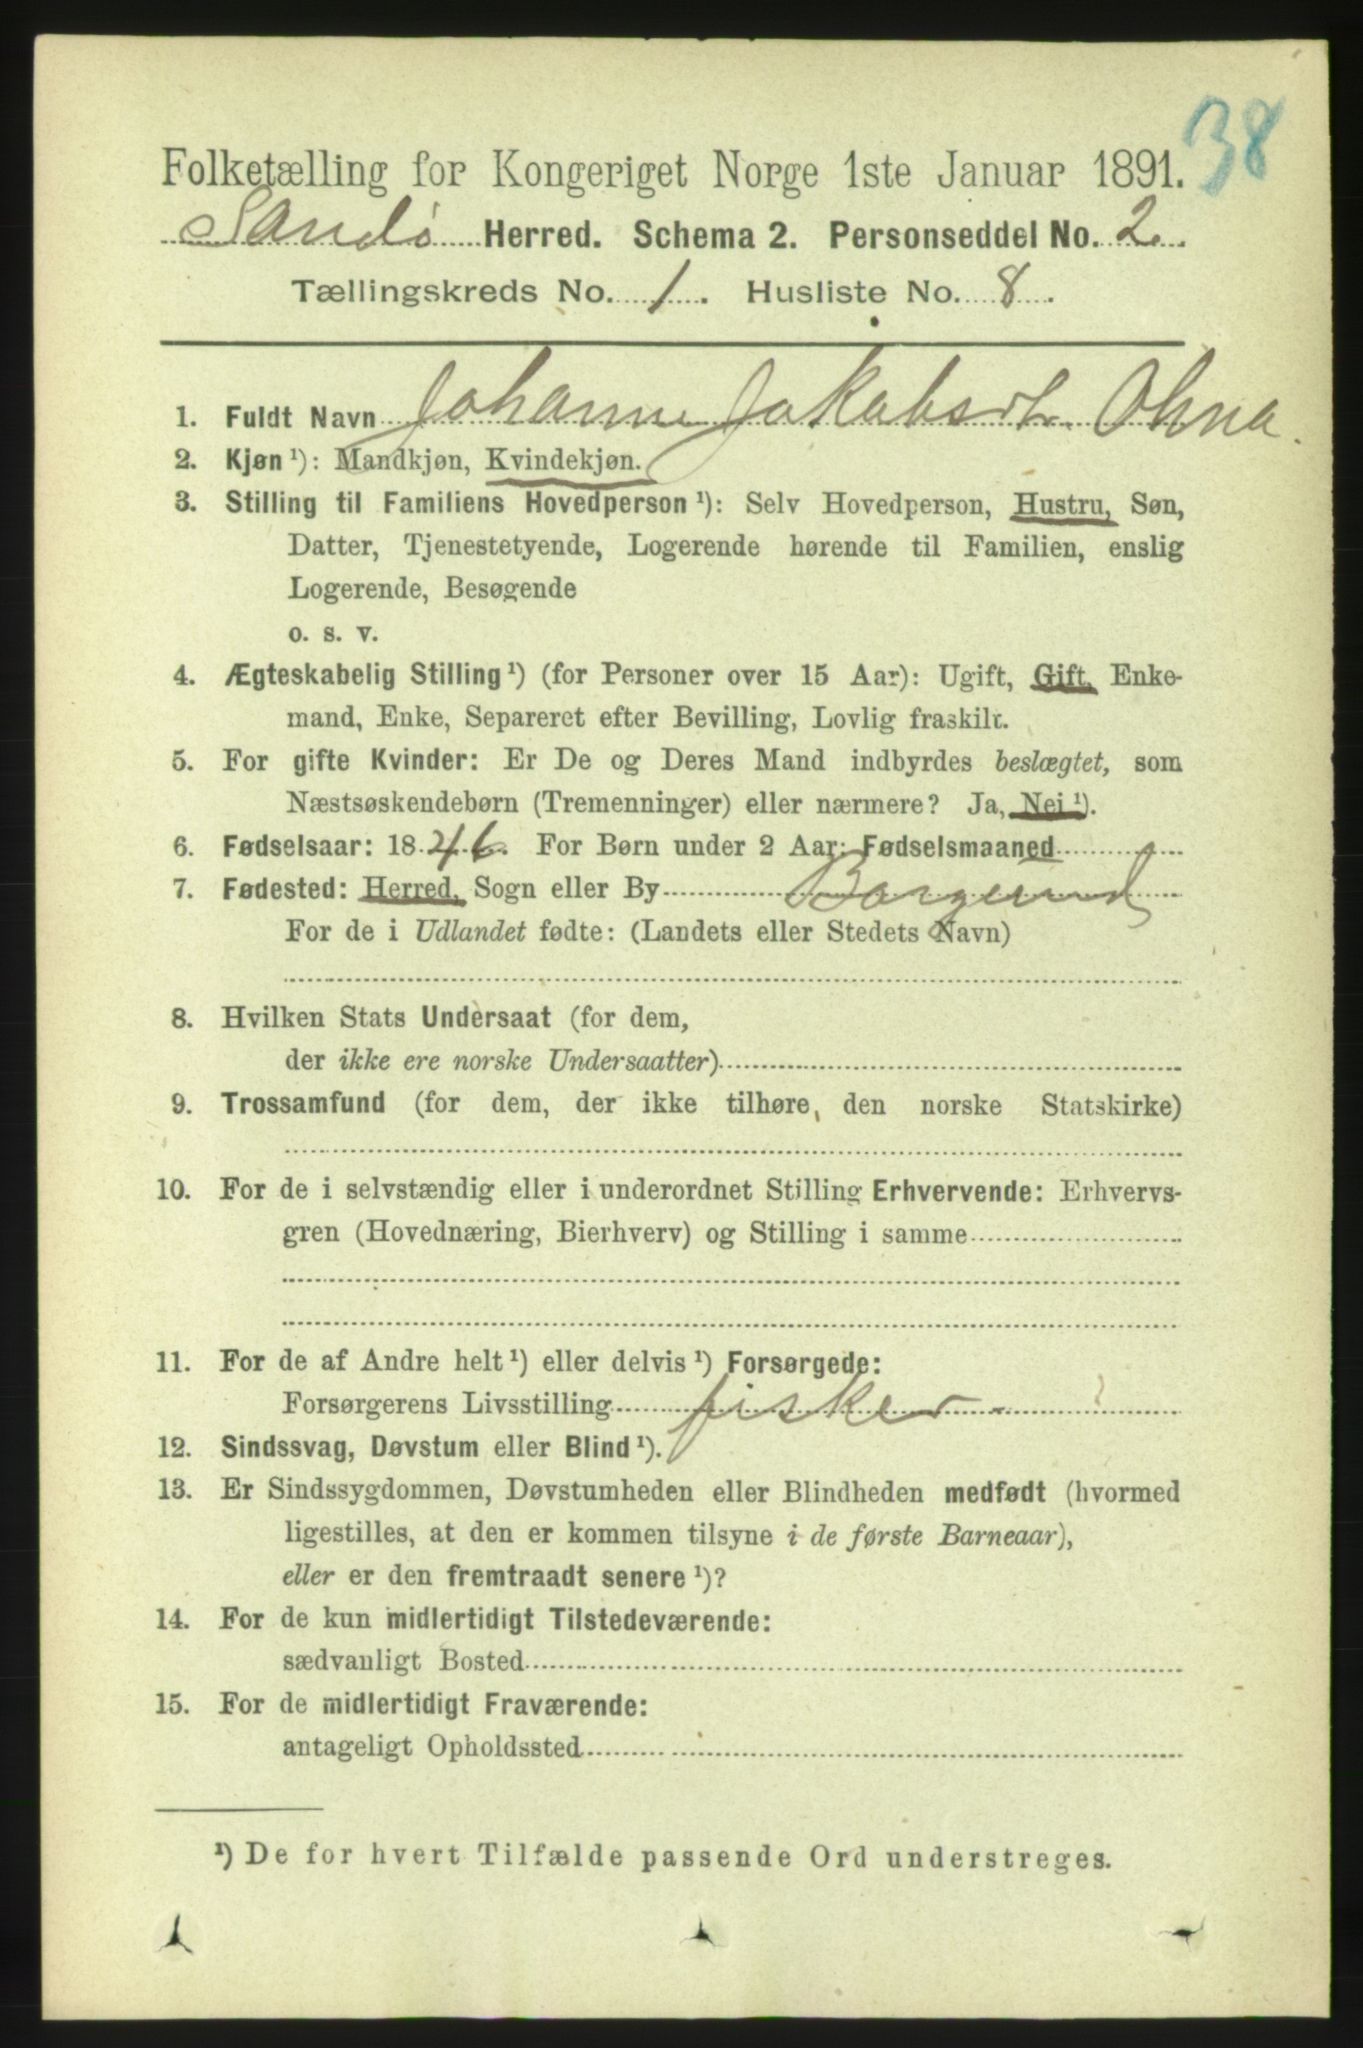 38
Folketælling for Kongeriget Norge 1ste Januar 1891.
Sandö Herred. Schema 2. Personseddel No. 2.
Tællingskreds No. 1. Husliste No. 8.
1. Fuldt Navn Johanne Jakobsdt. Ohna.
2. Kjøn ¹): Mandkjøn, Kvindekjøn.
3. Stilling til Familiens Hovedperson ¹): Selv Hovedperson, Hustru, Søn,
Datter, Tjenestetyende, Logerende hørende til Familien, enslig
Logerende, Besøgende
o. s. v.
4. Ægteskabelig Stilling ¹) (for Personer over 15 Aar): Ugift, Gift, Enke-
mand, Enke, Separeret efter Bevilling, Lovlig fraskilt.
5. For gifte Kvinder: Er De og Deres Mand indbyrdes beslægtet, som
Næstsøskendebørn (Tremenninger) eller nærmere? Ja, Nei ¹).
6. Fødselsaar: 1846. For Børn under 2 Aar: Fødselsmaaned
7. Fødested: Herred, Sogn eller By Borgund
For de i Udlandet fødte: (Landets eller Stedets Navn)
8. Hvilken Stats Undersaat (for dem,
der ikke ere norske Undersaatter)
9. Trossamfund (for dem, der ikke tilhøre den norske Statskirke)
10. For de i selvstændig eller i underordnet Stilling Erhvervende: Erhvervs-
gren (Hovednæring, Bierhverv) og Stilling i samme
11. For de af Andre helt ¹) eller delvis ¹) Forsørgede:
Forsørgerens Livsstilling fisker
12. Sindssvag, Døvstum eller Blind ¹).
13. Er Sindssygdommen, Døvstumheden eller Blindheden medfødt (hvormed
ligestilles, at den er kommen tilsyne i de første Barneaar),
eller er den fremtraadt senere ¹)?
14. For de kun midlertidigt Tilstedeværende:
sædvanligt Bosted
15. For de midlertidigt Fraværende:
antageligt Opholdssted
¹) De for hvert Tilfælde passende Ord understreges.